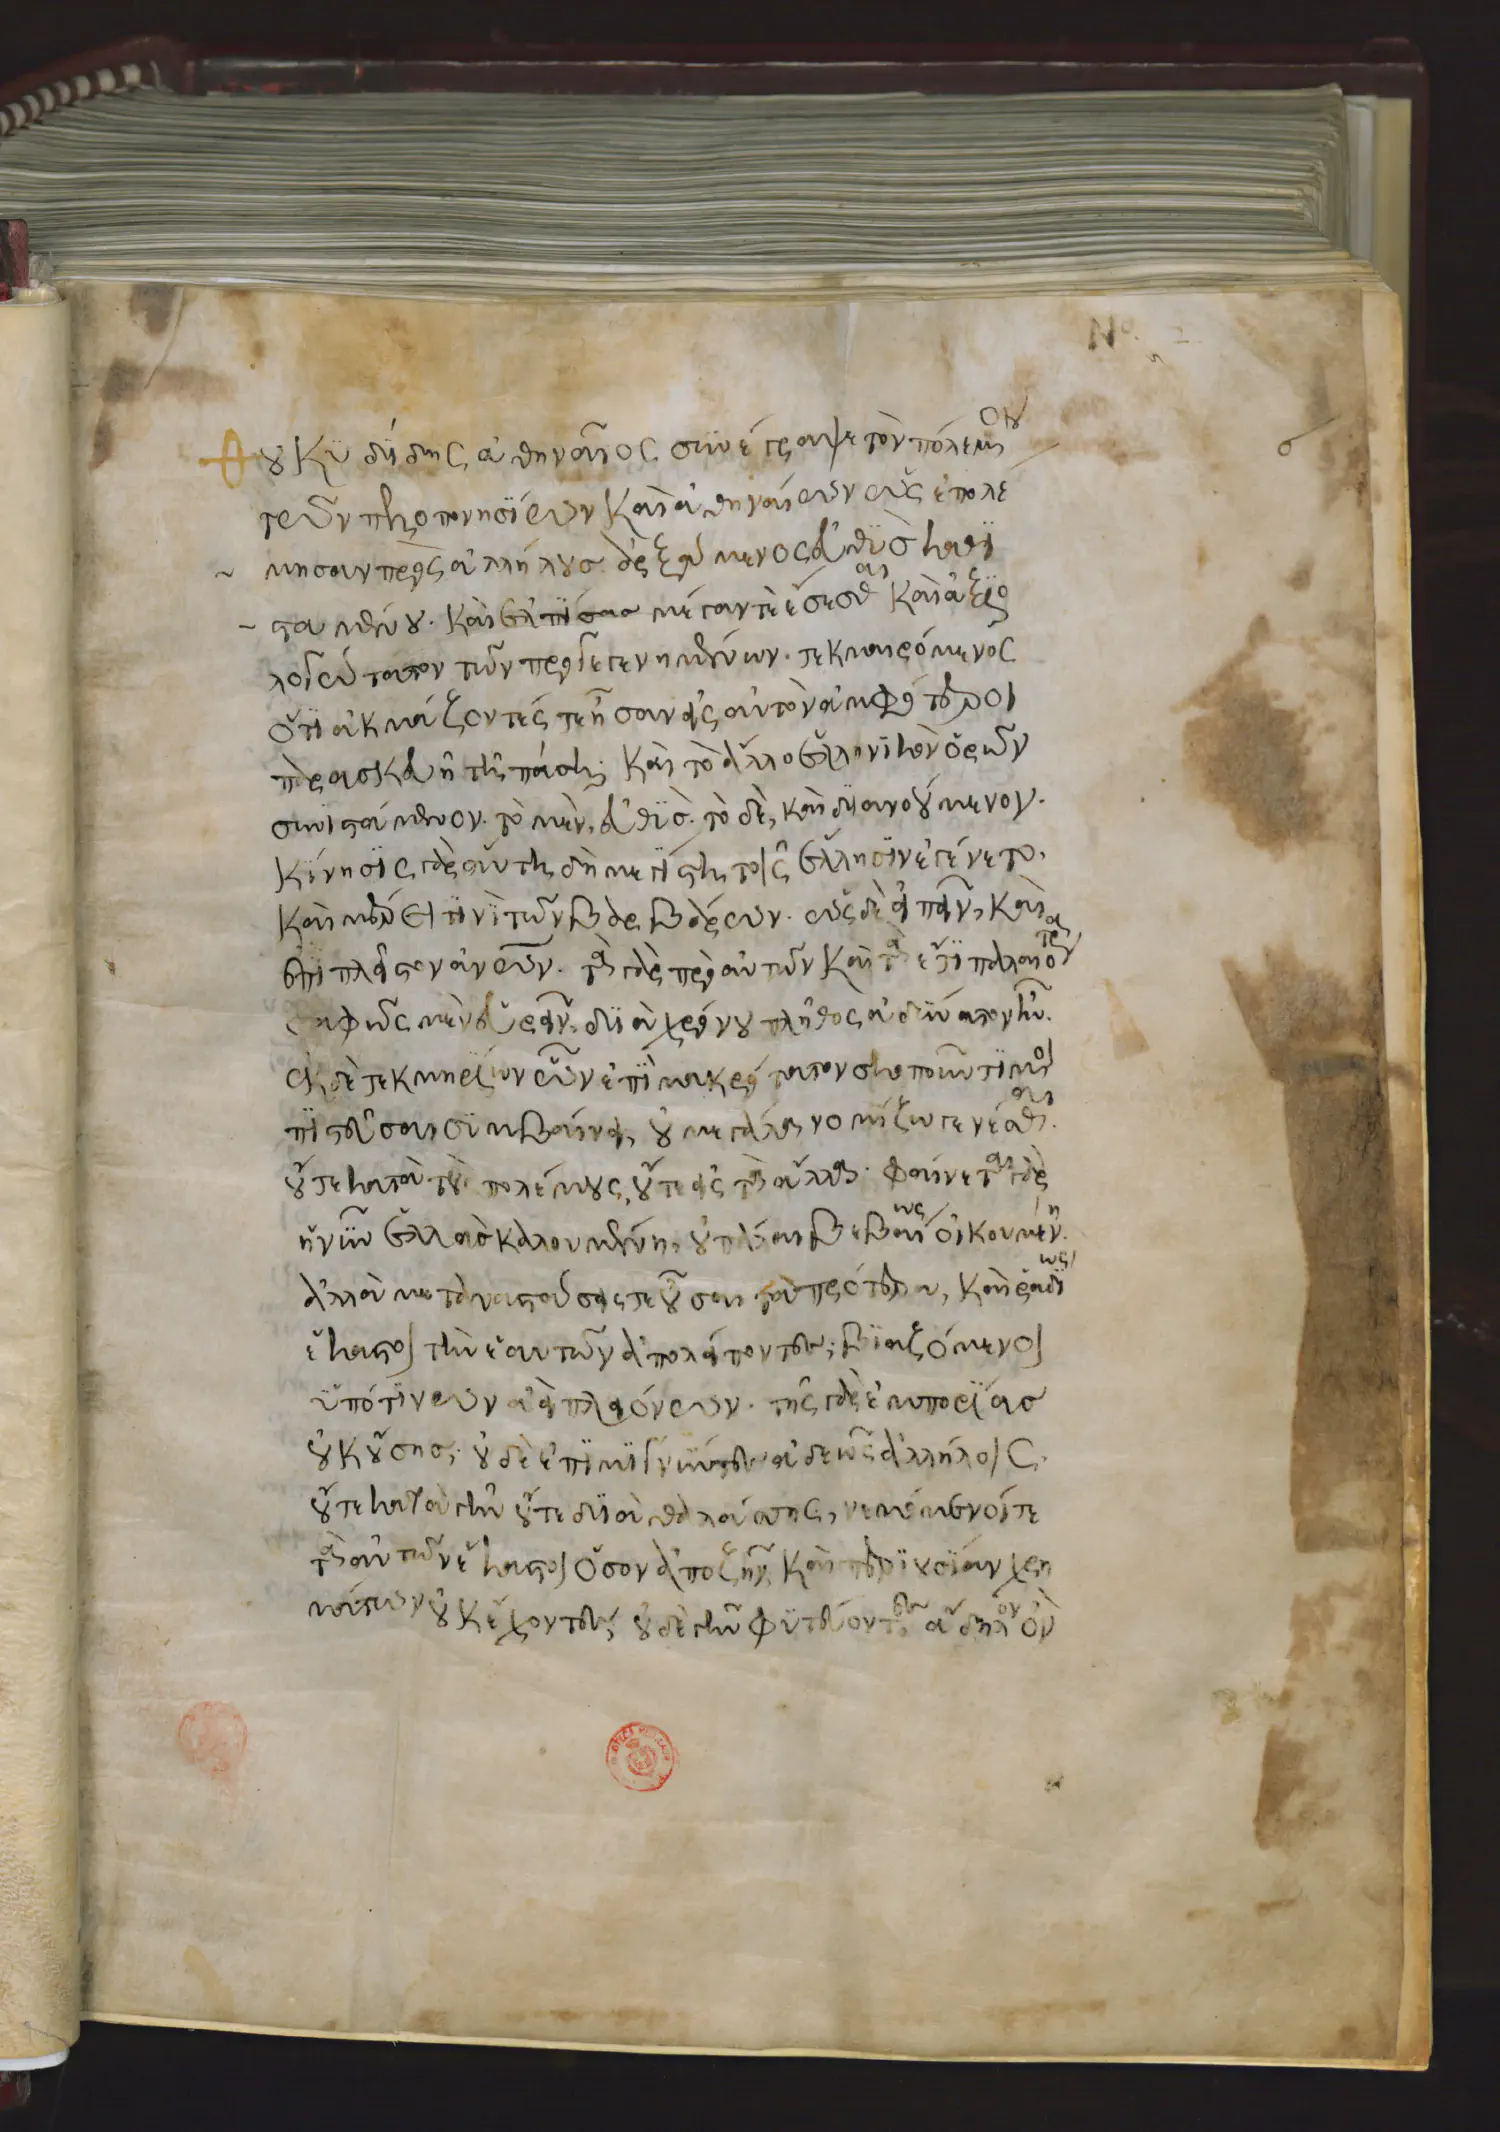 Nο.
Θουκυδίδης ἀθηναῖος συνέγραψε τὸν πόλεμον
τῶν πελοποννησίων καὶ ἀθηναίων ὡς ἐπολέ
μησαν πρὸς ἀλλήλους ἀρξάμενος εὐθὺς καθι
σταμένου. καὶ ἐλπίσας μέγαν τὲ ἔσεσθαι καὶ ἀξιο
λογώτατον τῶν προγεγενημένων. τεκμαιρόμενος
ὅτι ἀκμάζοντές τε ἦσαν ἐς αὐτὸν ἀμφότεροι
παρασκευῇ τῇ πάσῃ· καὶ τὸ ἄλλο ἑλληνικὸν ὁρῶν
συνιστάμενον. τὸ μὲν, εὐθὺς. τὸ δὲ, καὶ διανοούμενον.
κίνησις γὰρ αὕτη δὴ μεγίστη τοῖς ἕλλησιν ἐγένετο.
καὶ μέρει τινὶ τῶν βαρβάρων. ὡς δὲ εἰπεῖν, καὶ
ἐπὶ πλεῖστον ἀνθρώπων. τὰ γὰρ πρὸ αὐτῶν καὶ τὰ ἔτι παλαιότερα
σαφῶς μὲν εὑρεῖν, διὰ χρόνου πλῆθος ἀδύνατον ἦν.
ἐκ δὲ τεκμηρίων ὧν ἐπὶ μακρότατον σκοποῦντί μοι
πιστεῦσαι συμβαίνει, οὐ μεγάλα νομίζω γενέσθαι.
οὔτε κατὰ τοὺς πολέμους, οὔτε ἐς τὰ ἄλλα. φαίνεται γὰρ
ἡ νῦν ἑλλὰς καλουμένη, οὐ πάλαι βεβαίως οἰκουμένη.
ἀλλὰ μεταναστάσεις τε οὖσαι τὰ πρότερα, καὶ ῥαδίως
ἕκαστοι τὴν ἑαυτῶν ἀπολείποντες, βιαζόμενοι
ὑπό τινων ἀεὶ πλειόνων. τῆς γὰρ ἐμπορίας
οὐκ οὔσης, οὐδὲ ἐπιμιγνύντες ἀδεῶς ἀλλήλοις.
οὔτε κατὰ γῆν οὔτε διὰ θαλάσσης, νεμόμενοί τε
τὰ αὑτῶν ἕκαστοι ὅσον ἀποζῆν, καὶ περιουσίαν χρη
μάτων οὐκ ἔχοντες, οὐδὲ γῆν φυτεύοντες ἄδηλον ὂν